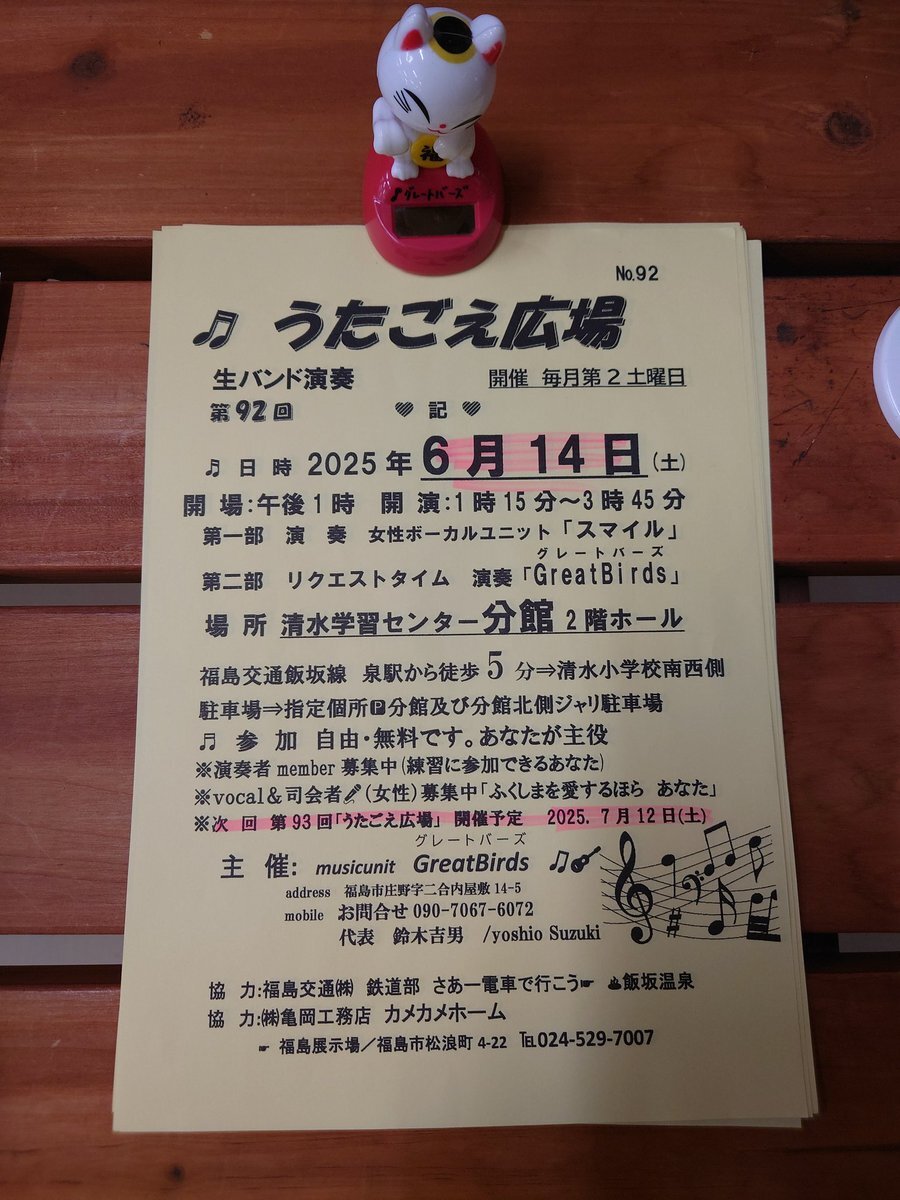 福
♪グレートバーズ
No.92
♬ うたごえ広場
生バンド演奏 開催 毎月第2土曜日
第92回 ♥ 記 ♥
♬ 日 時 2025年 6月14日(土)
開 場:午後1時 開 演:1時15分～3時45分
第一部 演 奏 女性ボーカルユニット「スマイル」
グレートバーズ
第二部 リクエストタイム 演奏「GreatBirds」
場 所 清水学習センター分館 2階ホール
福島交通飯坂線 泉駅から徒歩 5 分⇒清水小学校南西側
駐車場⇒指定個所🅿分館及び分館北側ジャリ駐車場
♬ 参 加 自由・無料です。あなたが主役
※演奏者 member 募集中(練習に参加できるあなた)
※vocal＆司会者🎤(女性)募集中「ふくしまを愛するほら あなた」
※次 回 第93回「うたごえ広場」 開催予定 2025. 7月12日(土)
グレートバーズ
主 催: musicunit GreatBirds
address 福島市庄野字二合内屋敷14-5
mobile お問合せ 090-7067-6072
代表 鈴木吉男 /yoshio Suzuki
協 力:福島交通㈱ 鉄道部 さあー電車で行こう☞ ♨飯坂温泉
協 力:㈱亀岡工務店 カメカメホーム
☞ 福島展示場／福島市松浪町 4-22 ℡024-529-7007